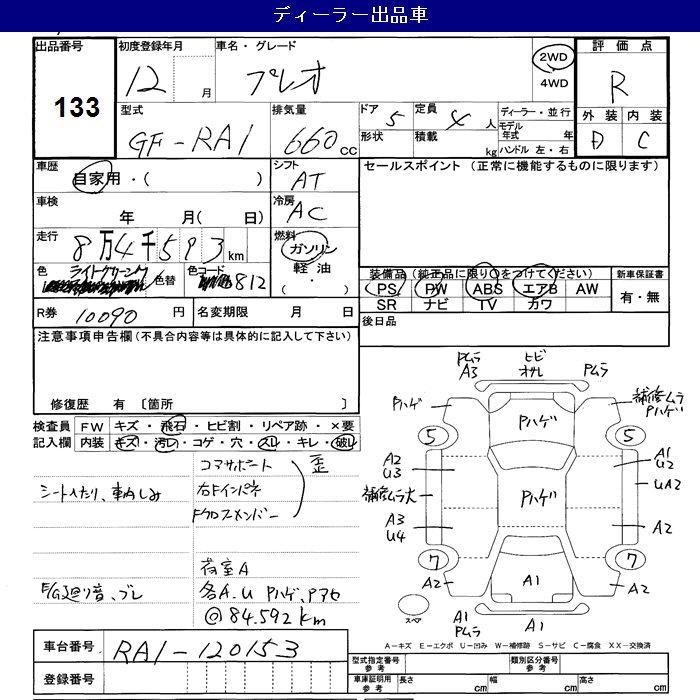 ディーラー出品車
出品番号 133
初度登録年月 12 月
車名・グレード プレオ
2WD
4WD
評価点 R
外装 D 内装 C
型式 GF-RA1
排気量 660 cc
ドア 5 定員 4 人
形状 積載 kg
ディーラー・並行
モデル年式 年
ハンドル 左・右
車歴 自家用・( )
シフト AT
セールスポイント (正常に機能するものに限ります)
車検 年 月( 日)
冷房 AC
走行 8万4千593 km
燃料 ガソリン
軽油
・
( )
色 ライトグリーング 色替
色コード 812
装備品(純正品に限り○をつけてください) 新車保証書
PS PW ABS エアB AW 有・無
SR ナビ TV カワ
R券 10090 円
名変期限 月 日
後日品
注意事項申告欄(不具合内容等は具体的に記入して下さい)
修復歴 有 〔箇所
検査員 FW キズ・飛石・ヒビ割・リペア跡・×要
記入欄 内装 キズ・汚れ・コゲ・穴・スレ・キレ・破レ
コアサポート
右Fインパネ
Fクロスメンバー
歪
シートへたり、車内しみ
荷室A
E/G廻り音、ブレ
各A.U Pハゲ、Pアセ
@84.592km
Pムラ
A3
ヒビ
オサレ
Pムラ
Pハゲ
Pハゲ
補修ムラ
Pハゲ
5
5
A2
U3
A1
U2
UA2
補修ムラ大
Pハゲ
A3
U4
A2
7
7
A2
A1
A2
スペア
A1
Pムラ
A1
A-キズ E-エクボ U-凹み W-補修跡 S-サビ C-腐食 XX-交換済
車台番号 RA1-120153
登録番号
型式指定番号 参考
類別区分番号 参考
車庫証明用 参考
長さ cm 幅 cm 高さ cm